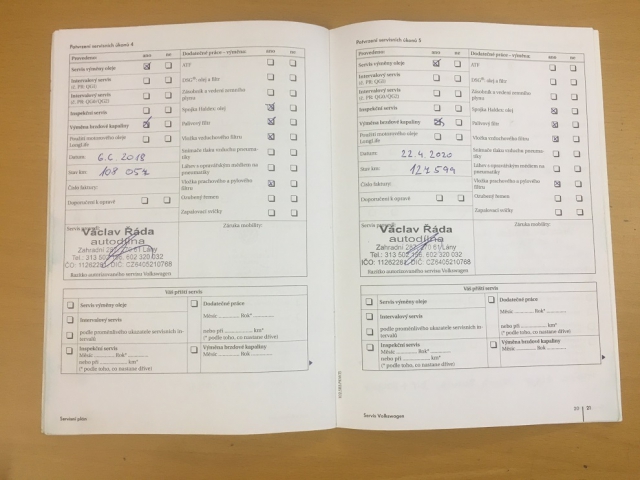 Potvrzení servisních úkonů 4
Provedeno: ano ne
Servis výměny oleje
Intervalový servis
(č. PR: QG1)
Intervalový servis
(č. PR: QG0/QG2)
Inspekční servis
Výměna brzdové kapaliny
Použití motorového oleje
LongLife
Datum: 6.6.2018
Stav km: 108 057
Číslo faktury:
Doporučení k opravě
Dodatečné práce - výměna: ano ne
ATF
DSG® olej a filtr
Zásobník a vedení zemního
plynu
Spojka Haldex: olej
Palivový filtr
Vložka vzduchového filtru
Snímače tlaku vzduchu pneuma-
tiky
Láhev s opravárenským médiem na
pneumatiky
Vložka prachového a pylového
filtru
Ozubený řemen
Zapalovací svíčky
Servis provedl:
Záruka mobility:
Václav Řáda
autodílna
Zahradní 287, 270 61 Lány
Tel.: 313 502 156, 602 320 032
IČO: 11262281, DIČ: CZ6405210768
Razítko autorizovaného servisu Volkswagen
Váš příští servis
Servis výměny oleje
Intervalový servis
podle proměnlivého ukazatele servisních in-
tervalů
Inspekční servis
Měsíc ............ Rok* ............
nebo při ............ km*
(* podle toho, co nastane dříve)
Dodatečné práce
Měsíc ............ Rok* ............
nebo při ............ km*
(* podle toho, co nastane dříve)
Výměna brzdové kapaliny
Měsíc ............ Rok ............
Servisní plán
Potvrzení servisních úkonů 5
Provedeno: ano ne
Servis výměny oleje
Intervalový servis
(č. PR: QG1)
Intervalový servis
(č. PR: QG0/QG2)
Inspekční servis
Výměna brzdové kapaliny
Použití motorového oleje
LongLife
Datum: 22.4.2020
Stav km: 127 599
Číslo faktury:
Doporučení k opravě
Dodatečné práce - výměna: ano ne
ATF
DSG® olej a filtr
Zásobník a vedení zemního
plynu
Spojka Haldex: olej
Palivový filtr
Vložka vzduchového filtru
Snímače tlaku vzduchu pneuma-
tiky
Láhev s opravárenským médiem na
pneumatiky
Vložka prachového a pylového
filtru
Ozubený řemen
Zapalovací svíčky
Servis provedl:
Záruka mobility:
Václav Řáda
autodílna
Zahradní 287, 270 61 Lány
Tel.: 313 502 156, 602 320 032
IČO: 11262281, DIČ: CZ6405210768
Razítko autorizovaného servisu Volkswagen
Váš příští servis
Servis výměny oleje
Intervalový servis
podle proměnlivého ukazatele servisních in-
tervalů
Inspekční servis
Měsíc ............ Rok* ............
nebo při ............ km*
(* podle toho, co nastane dříve)
Dodatečné práce
Měsíc ............ Rok* ............
nebo při ............ km*
(* podle toho, co nastane dříve)
Výměna brzdové kapaliny
Měsíc ............ Rok ............
Servis Volkswagen
21